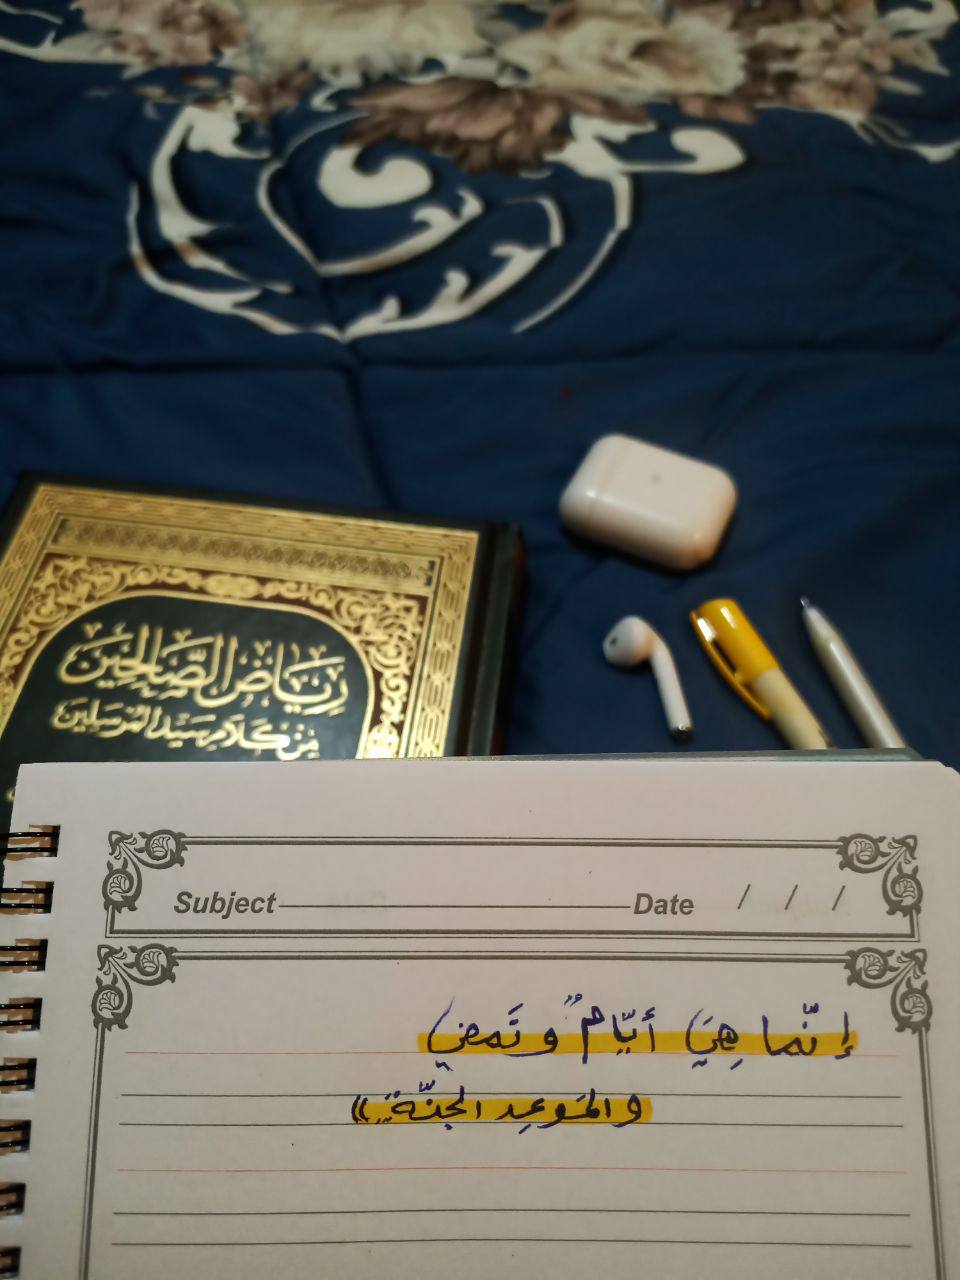 رياض الصالحين
من كلام سيد المرسلين
Subject Date / / /
إنّما هِيَ أيّامٌ وتَمضي
والمَوعِد الجنّة